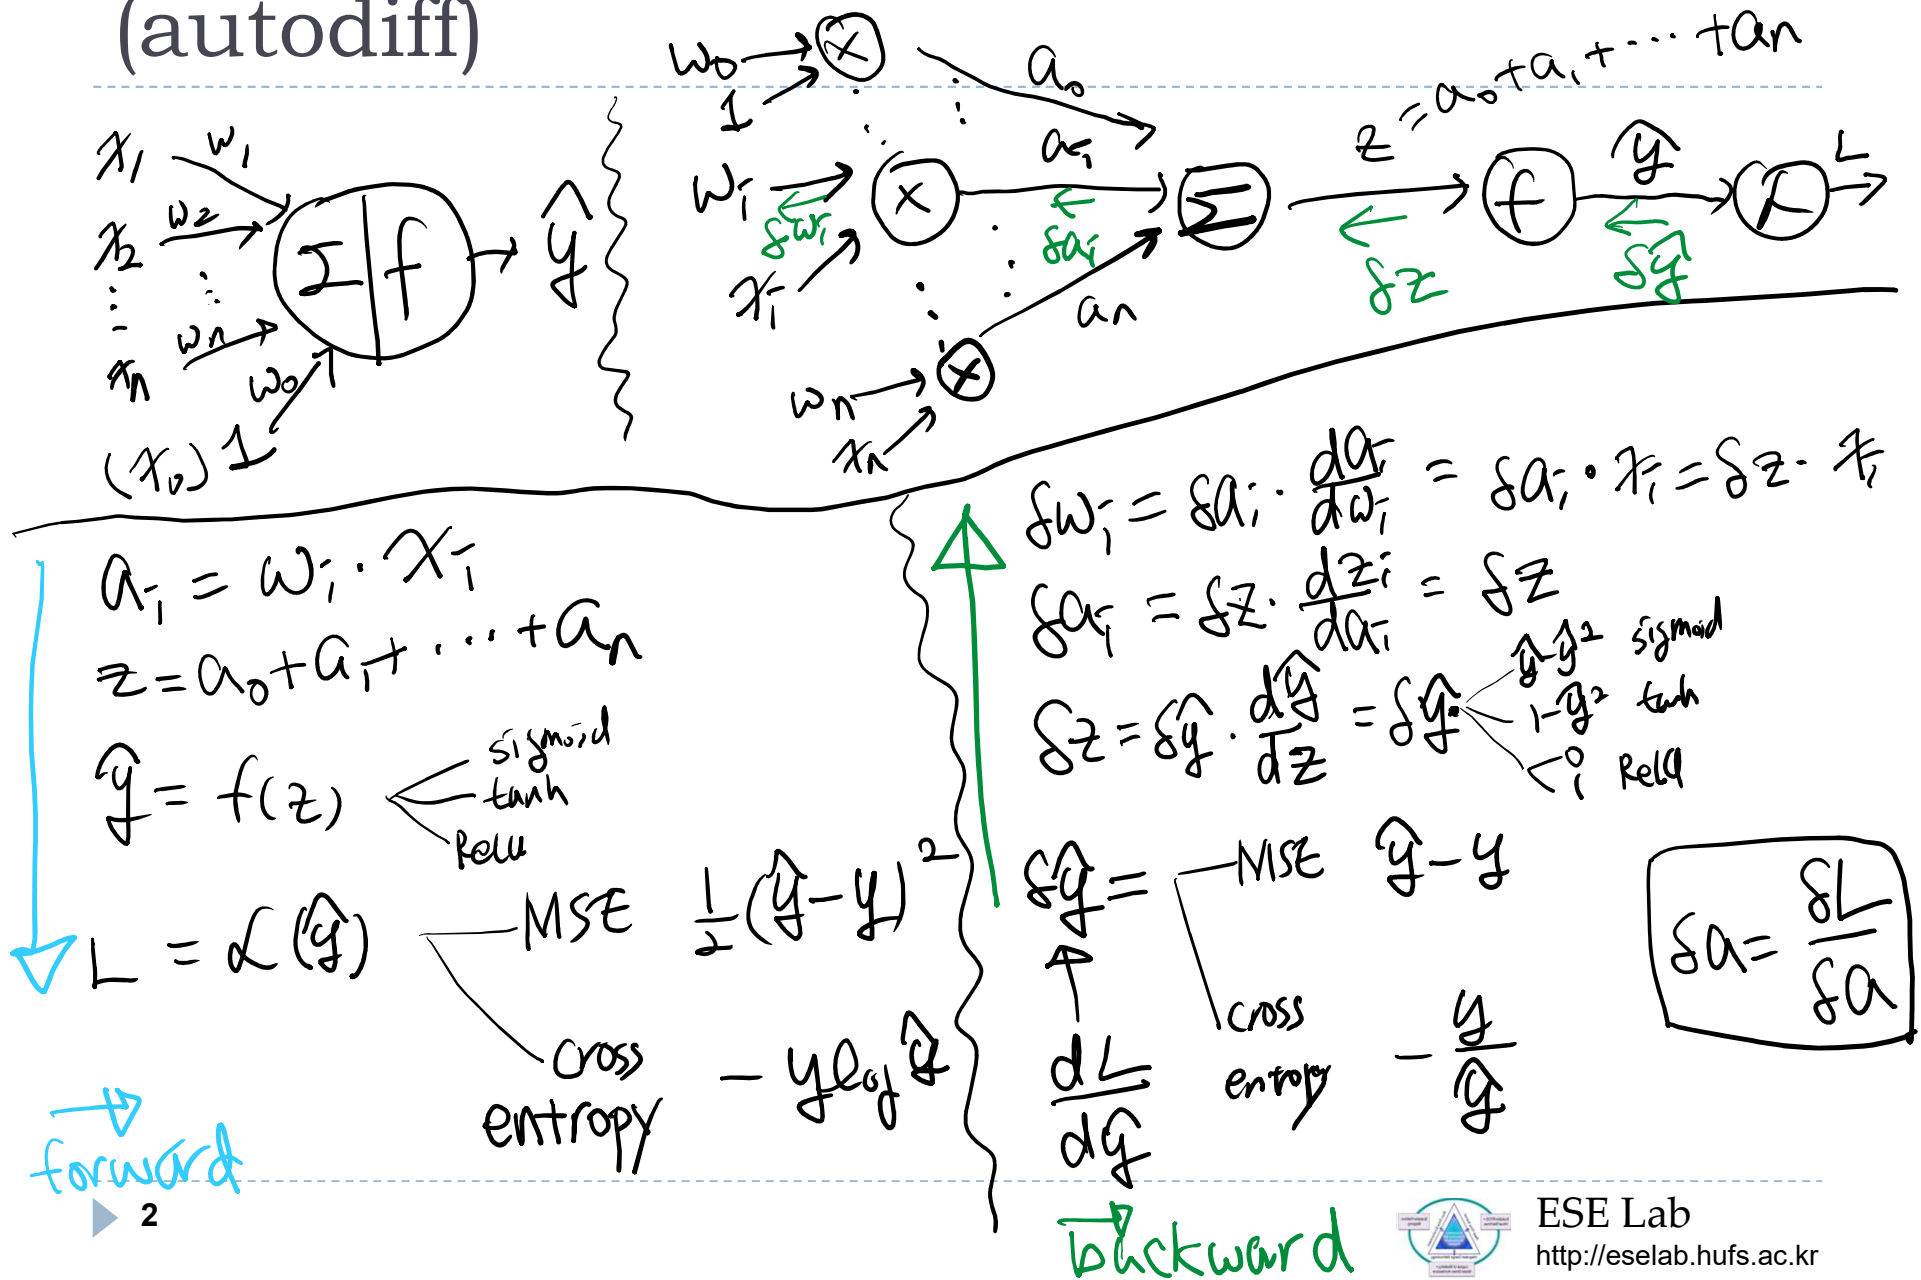 (autodiff)
x₁ w₁
x₂ w₂
⋮ ⋮
xₙ wₙ
w₀
(x₀) 1
Σ | f
ŷ
w₀
1
×
a₀
wᵢ
xᵢ
×
aᵢ
δwᵢ
δaᵢ
wₙ
xₙ
×
aₙ
Σ
z = a₀ + a₁ + ⋯ + aₙ
δz
f
ŷ
δŷ
ℒ
L
aᵢ = wᵢ · xᵢ
z = a₀ + a₁ + ⋯ + aₙ
ŷ = f(z)
sigmoid
tanh
Relu
L = ℒ(ŷ)
MSE ½(ŷ − y)²
cross
entropy − y log ŷ
forward
δwᵢ = δaᵢ · daᵢ/dwᵢ = δaᵢ · xᵢ = δz · xᵢ
δaᵢ = δz · dzᵢ/daᵢ = δz
δz = δŷ · dŷ/dz = δŷ ·
ŷ − ŷ² sigmoid
1 − ŷ² tanh
< 0 1 Relu
δŷ =
MSE ŷ − y
cross
entropy − y/ŷ
dL/dŷ
δa = δL/δa
backward
2
ESE Lab
http://eselab.hufs.ac.kr